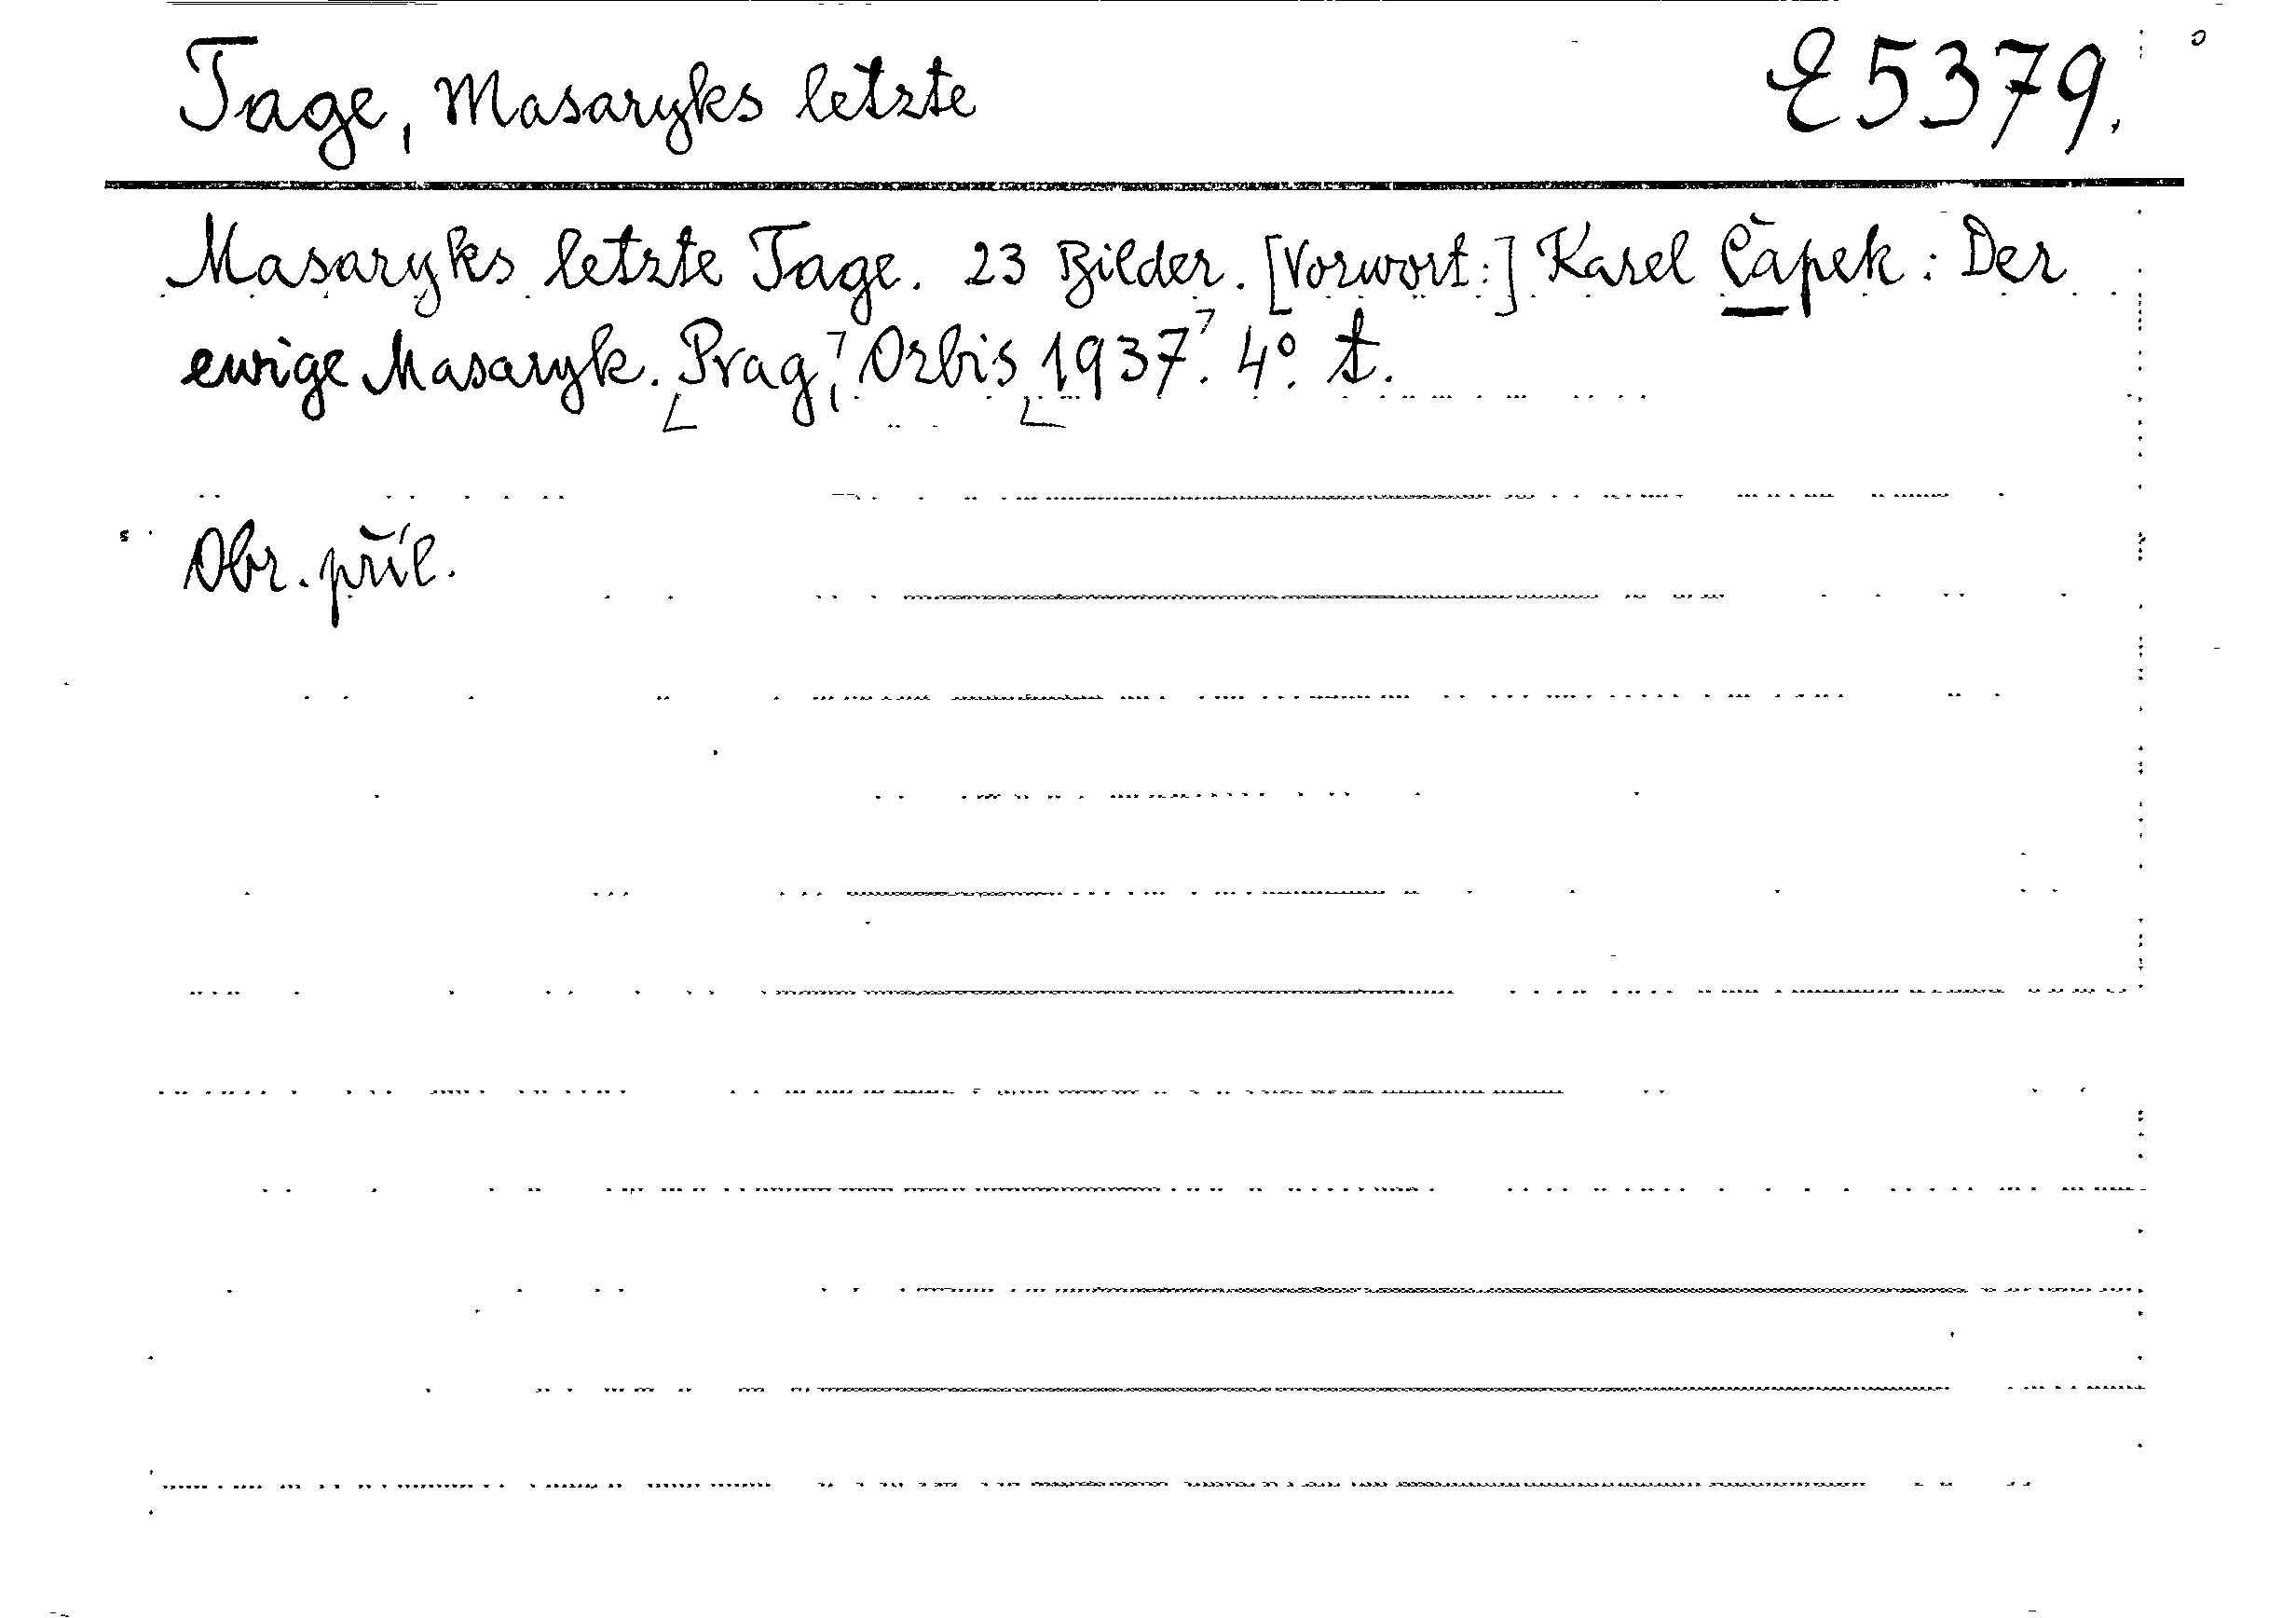 Tage, Masaryks letzte E 5379.
Masaryks letzte Tage. 23 Bilder. [Vorwort:] Karel Čapek: Der
ewige Masaryk. [Prag], Orbis [1937]. 4°. t.
Obr. příl.